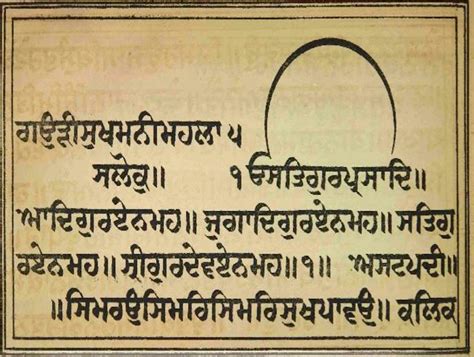 ਗਉੜੀਸੁਖਮਨੀਮਹਲਾ ੫
ਸਲੋਕੁ॥ ੴਸਤਿਗੁਰਪ੍ਰਸਾਦਿ॥
ਆਦਿਗੁਰਏਨਮਹ॥ ਜੁਗਾਦਿਗੁਰਏਨਮਹ॥ ਸਤਿਗੁ
ਰਏਨਮਹ॥ ਸ੍ਰੀਗੁਰਦੇਵਏਨਮਹ॥੧॥ ਅਸਟਪਦੀ
॥ਸਿਮਰਉਸਿਮਰਿਸਿਮਰਿਸੁਖਪਾਵਉ॥ ਕਲਿਕ